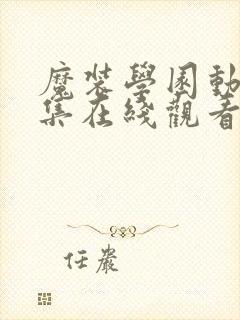 魔装學園動
集在綫觀看
任嚴